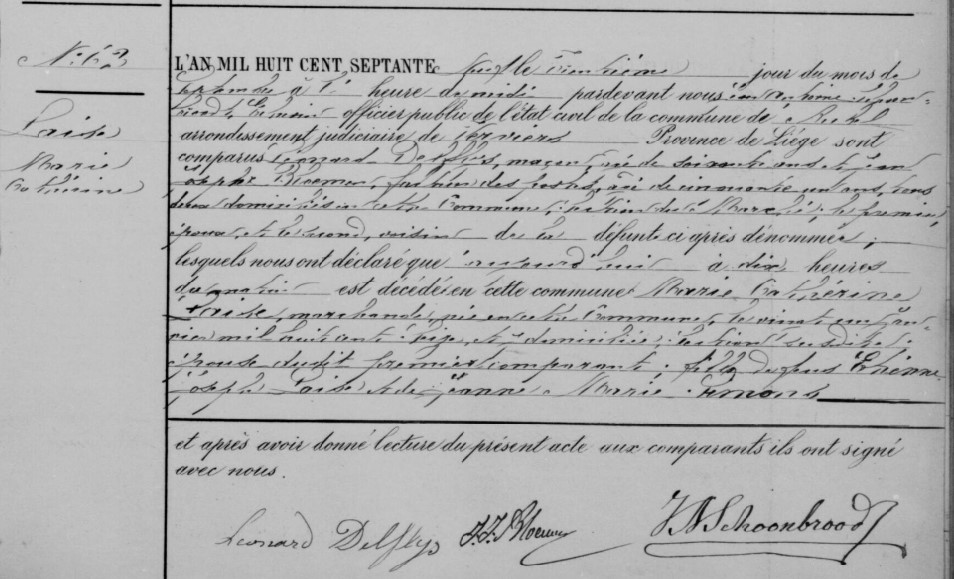 N: 62
Laisk
Marie
Catherine
L'AN MIL HUIT CENT SEPTANTE neuf le trentième jour du mois de
Septembre à l' heure de midi pardevant nous
officier public de l'état civil de la commune de
arrondissement judiciaire de Verviers Province de Liége sont
comparus Léonard Delflys, maçon, âgé de soixante ans et Jean
Joseph Bloemen, facteur des postes, âgé de cinquante un ans, tous
deux domiciliés en cette Commune, section du Marché, le premier,
époux, et le second, voisin de la défunte ci après dénommée ;
lesquels nous ont déclaré que aujourd'hui à dix heures
du matin est décédée en cette commune Marie Catherine
Laisk, marchande, née en cette Commune, le vingt un Jan-
vier mil huit cent seize, et y domiciliée, section susdite,
épouse du dit premier comparant ; fille de feus Etienne
Joseph Laisk et de Jeanne Marie
et après avoir donné lecture du présent acte aux comparants ils ont signé
avec nous.
Leonard Delflys J.J. Bloemen J N Schoonbrood